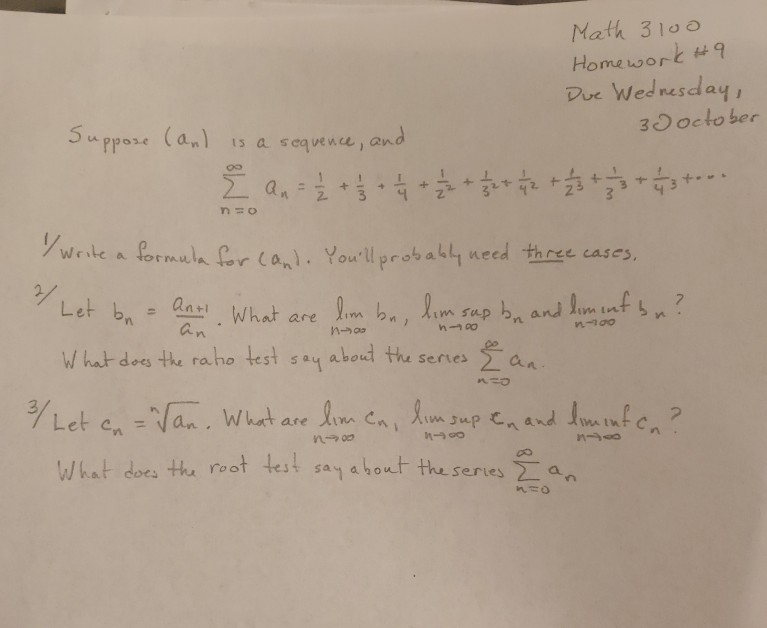 Math 3100
Homework #9
Due Wednesday,
30 October
Suppose (an) is a sequence, and
∞∑n=0 an = 1/2 + 1/3 + 1/4 + 1/2² + 1/3² + 1/4² + 1/2³ + 1/3³ + 1/4³ + ...
1/ Write a formula for (an). You'll probably need three cases.
2/ Let bn = an+1/an. What are lim n→∞ bn, lim sup n→∞ bn and lim inf n→∞ bn?
What does the ratio test say about the series ∞∑n=0 an.
3/ Let cn = ⁿ√an. What are lim n→∞ cn, lim sup n→∞ cn and lim inf n→∞ cn?
What does the root test say about the series ∞∑n=0 an